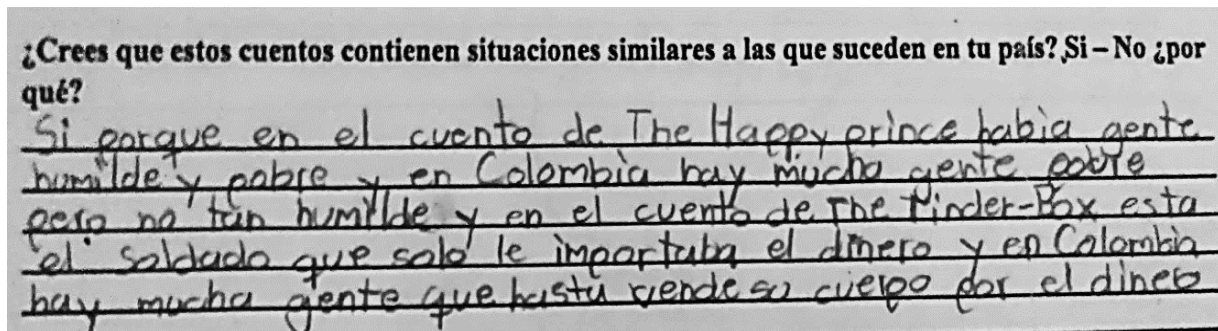 ¿Crees que estos cuentos contienen situaciones similares a las que suceden en tu país? Si – No ¿por
qué?
Si porque en el cuento de The Happy prince habia gente
humilde y pobre y en Colombia hay mucha gente pobre
pero no tan humilde y en el cuento de The tinder-Box esta
el soldado que solo le importaba el dinero y en Colombia
hay mucha gente que hasta vende su cuerpo por el dinero